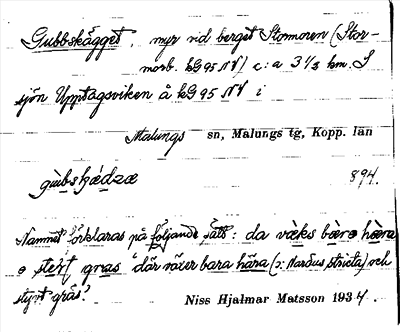 Gubbskägget, myr vid berget Stormoren (Stor-
morb. kG 95 NV) c:a 3 1/2 km. S
sjön Upptagsviken å kG 95 NV i
Malungs sn, Malungs tg, Kopp. län
894.
Namnet förklaras på följande sätt: da väks bære hæra
o steft gras "där växer bara hära (ɔ: Nardus stricta) och
styvt gräs".
Niss Hjalmar Matsson 1934.